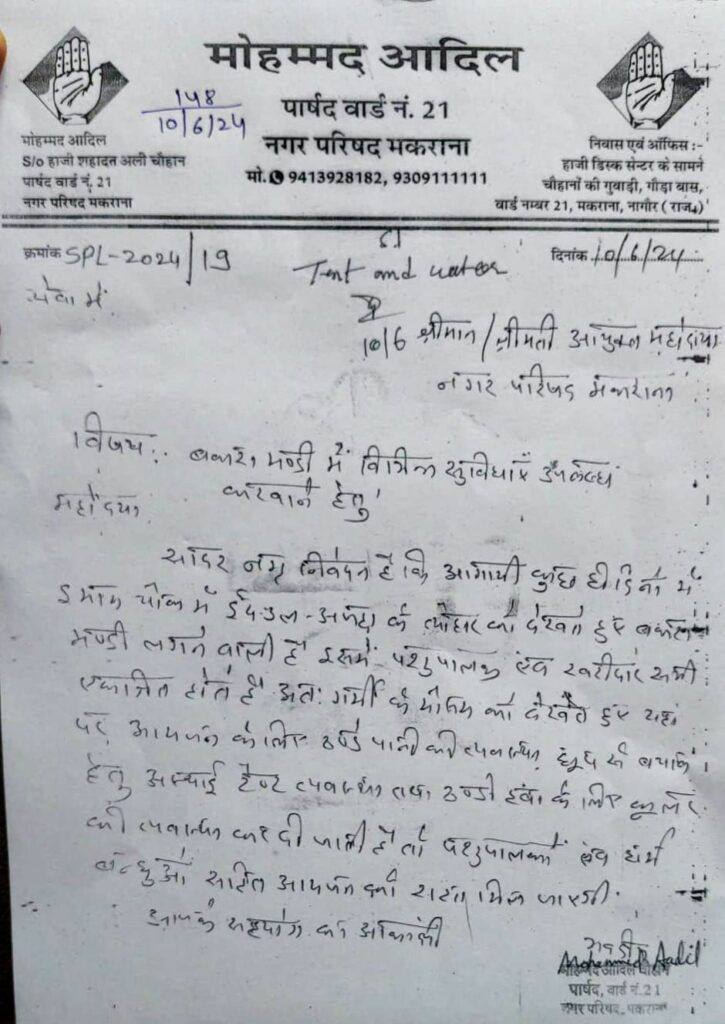 मोहम्मद आदिल
पार्षद वार्ड नं. 21
नगर परिषद मकराना
मो. 9413928182, 9309111111
148
10/6/24
मोहम्मद आदिल
S/o हाजी शहादत अली चौहान
पार्षद वार्ड नं. 21
नगर परिषद मकराना
निवास एवं ऑफिस :-
हाजी डिस्क सेन्टर के सामने
चौहानों की गुवाड़ी, गौड़ा बास,
वार्ड नम्बर 21, मकराना, नागौर ( राज.)
क्रमांक SPL-2024/19
दिनांक 10/6/24
Tent and water
10/6
सेवा में
श्रीमान/श्रीमती आयुक्त महोदया
नगर परिषद मकराना
विषय:- बकरा मण्डी में विभिन्न सुविधाएं उपलब्ध
करवाने हेतु
महोदया
सादर नम्र निवेदन है कि आगामी कुछ ही दिनों में
इमाम चौक में ईदउल-अजहा के त्यौहार को देखते हुए बकरा
मण्डी लगने वाली है इसमें पशुपालक एवं खरीदार सभी
एकत्रित होते है अतः गर्मी के मौसम को देखते हुए यहां
पर आमजन के लिए ठण्डे पानी की व्यवस्था, धूप से बचाव
हेतु अस्थाई टैण्ट व्यवस्था तथा ठण्डी हवा के लिए कूलर
की व्यवस्था कर दी जाती है तो पशुपालकों एवं धर्म
बन्धुओं सहित आमजन को राहत मिल जाएगी.
आपके सहयोग का आकांक्षी
Mohammed Aadil
मोहम्मद आदिल चौहान
पार्षद, वार्ड नं. 21
नगर परिषद, मकराना